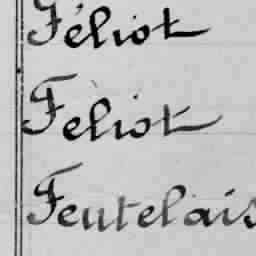 Féliot
Fèliot
Feutelais